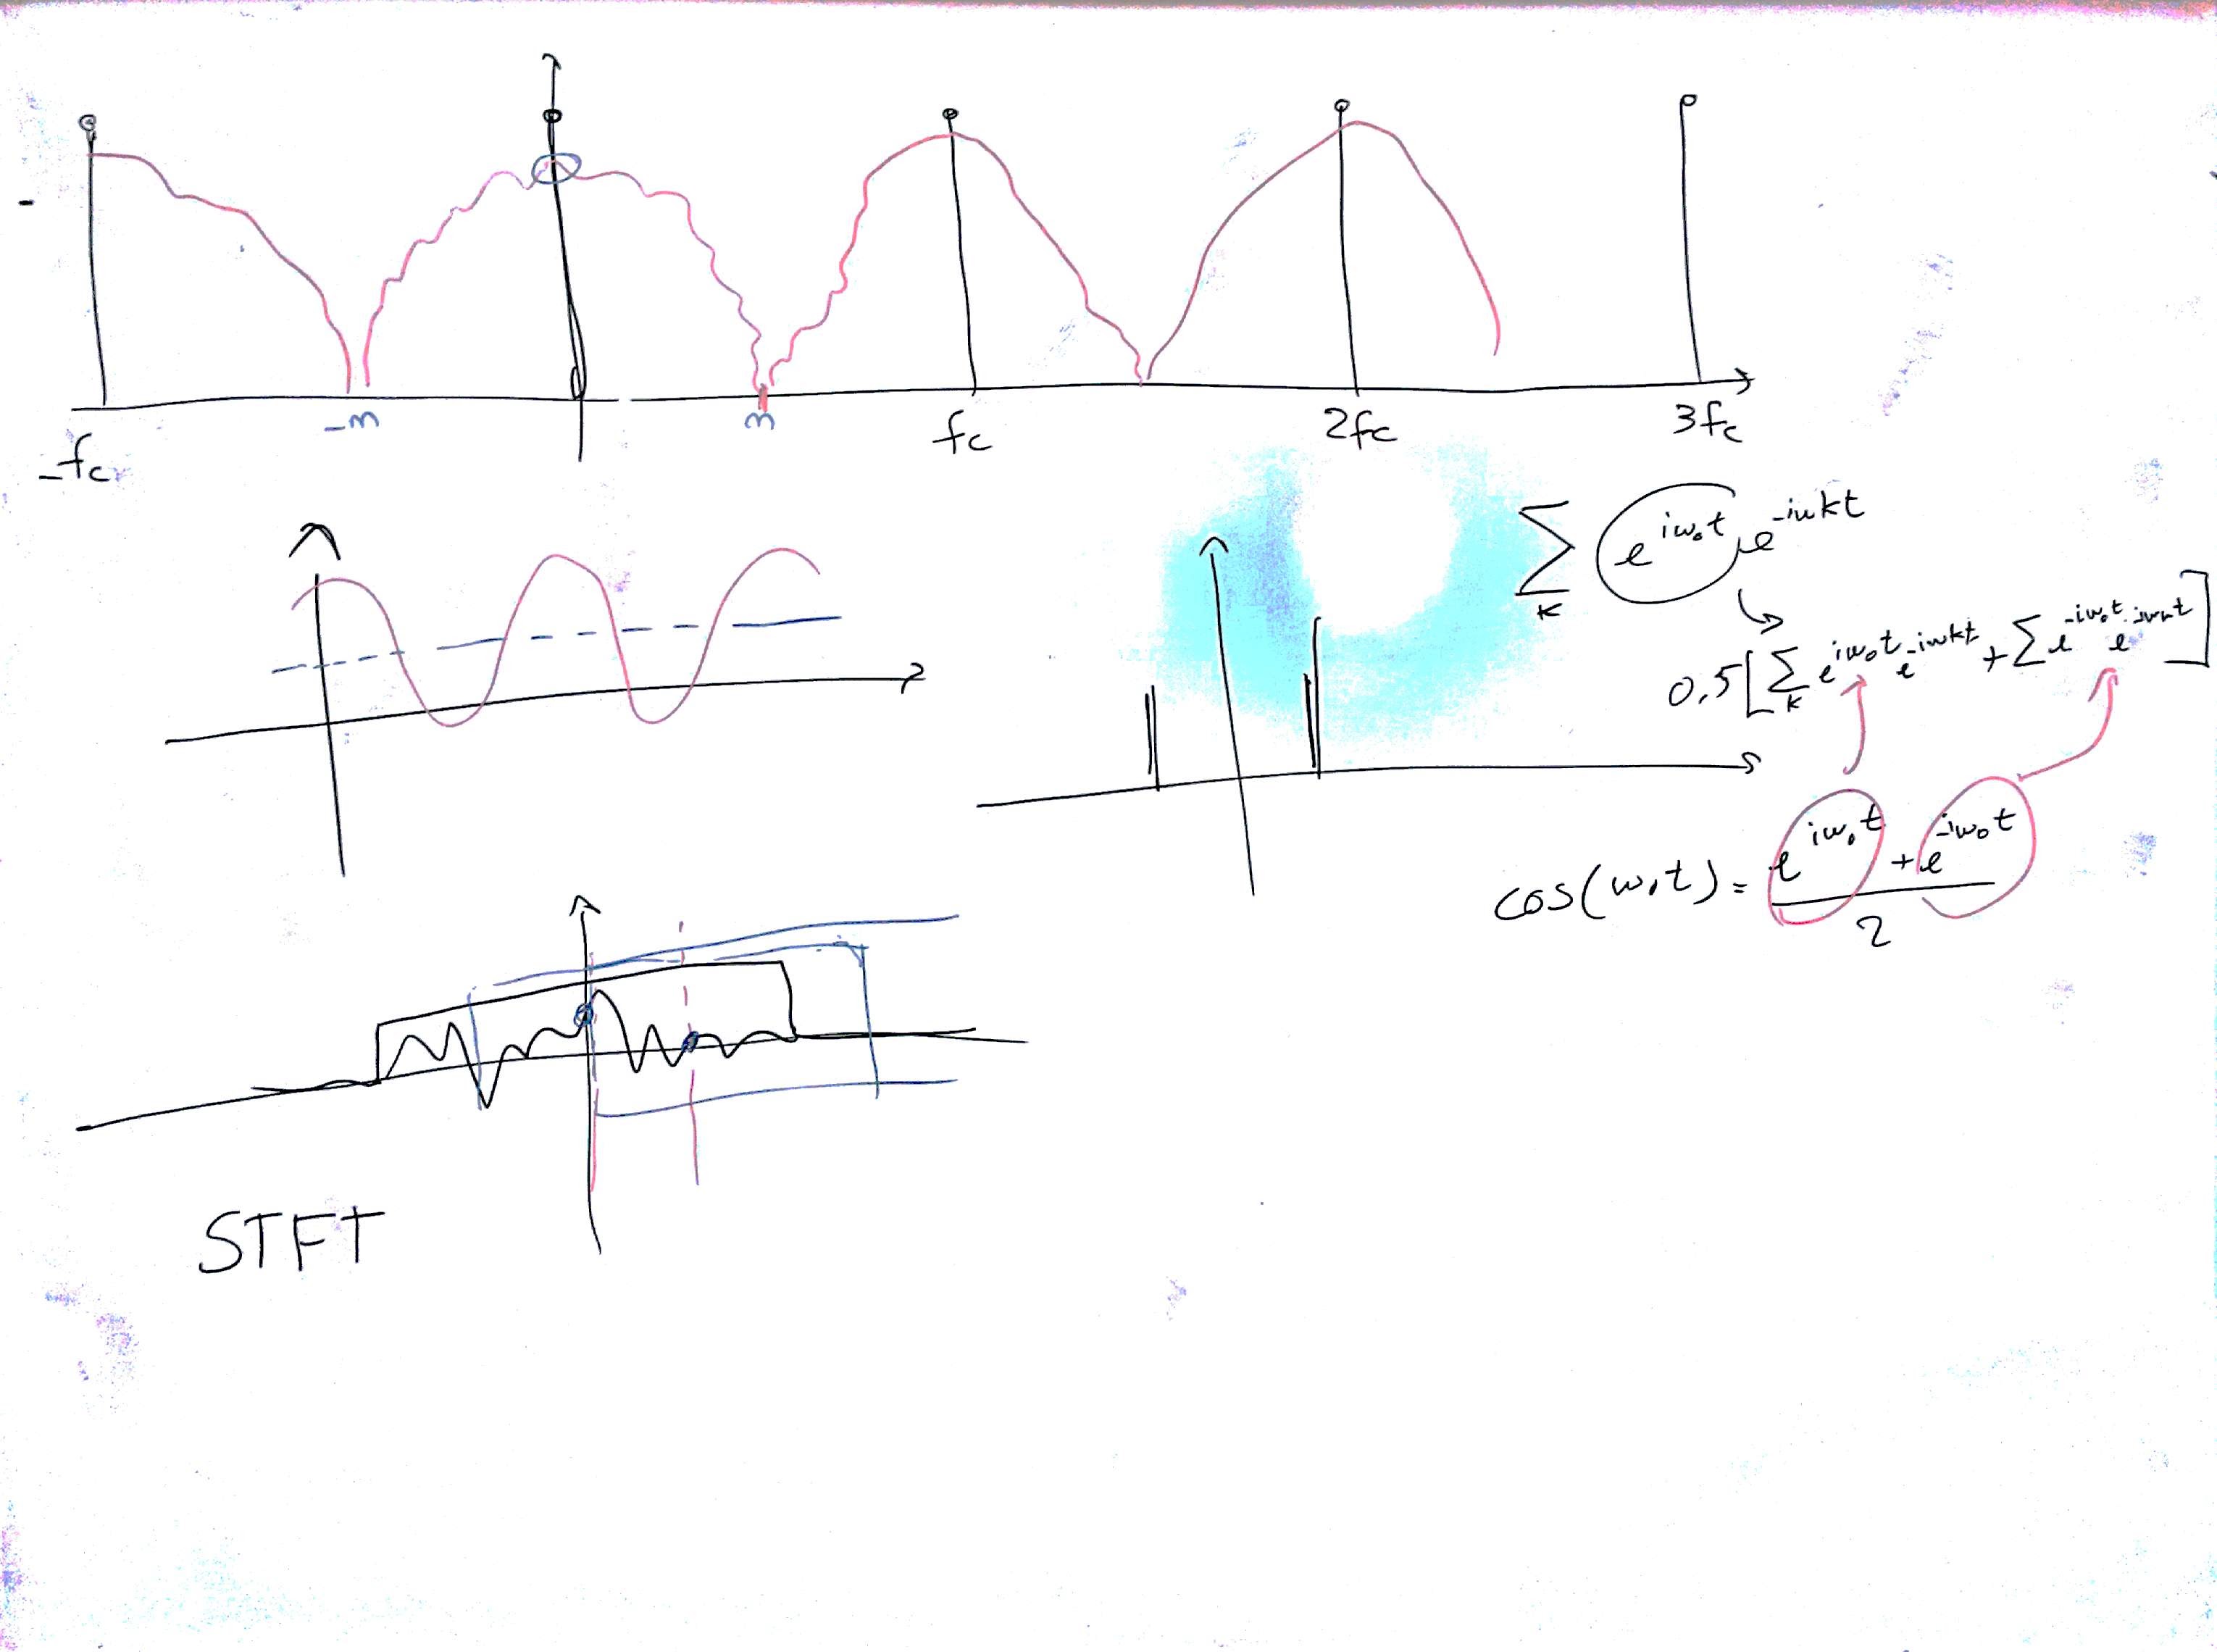 -fc -m m fc 2fc 3fc
∑ e^{iw₀t} e^{-iwkt}
K
0.5[∑ e^{iw₀t} e^{-iwkt} + ∑ e^{-iw₀t} e^{-iwkt}]
K
cos(w₀t) = e^{iw₀t} + e^{-iw₀t}
2
STFT